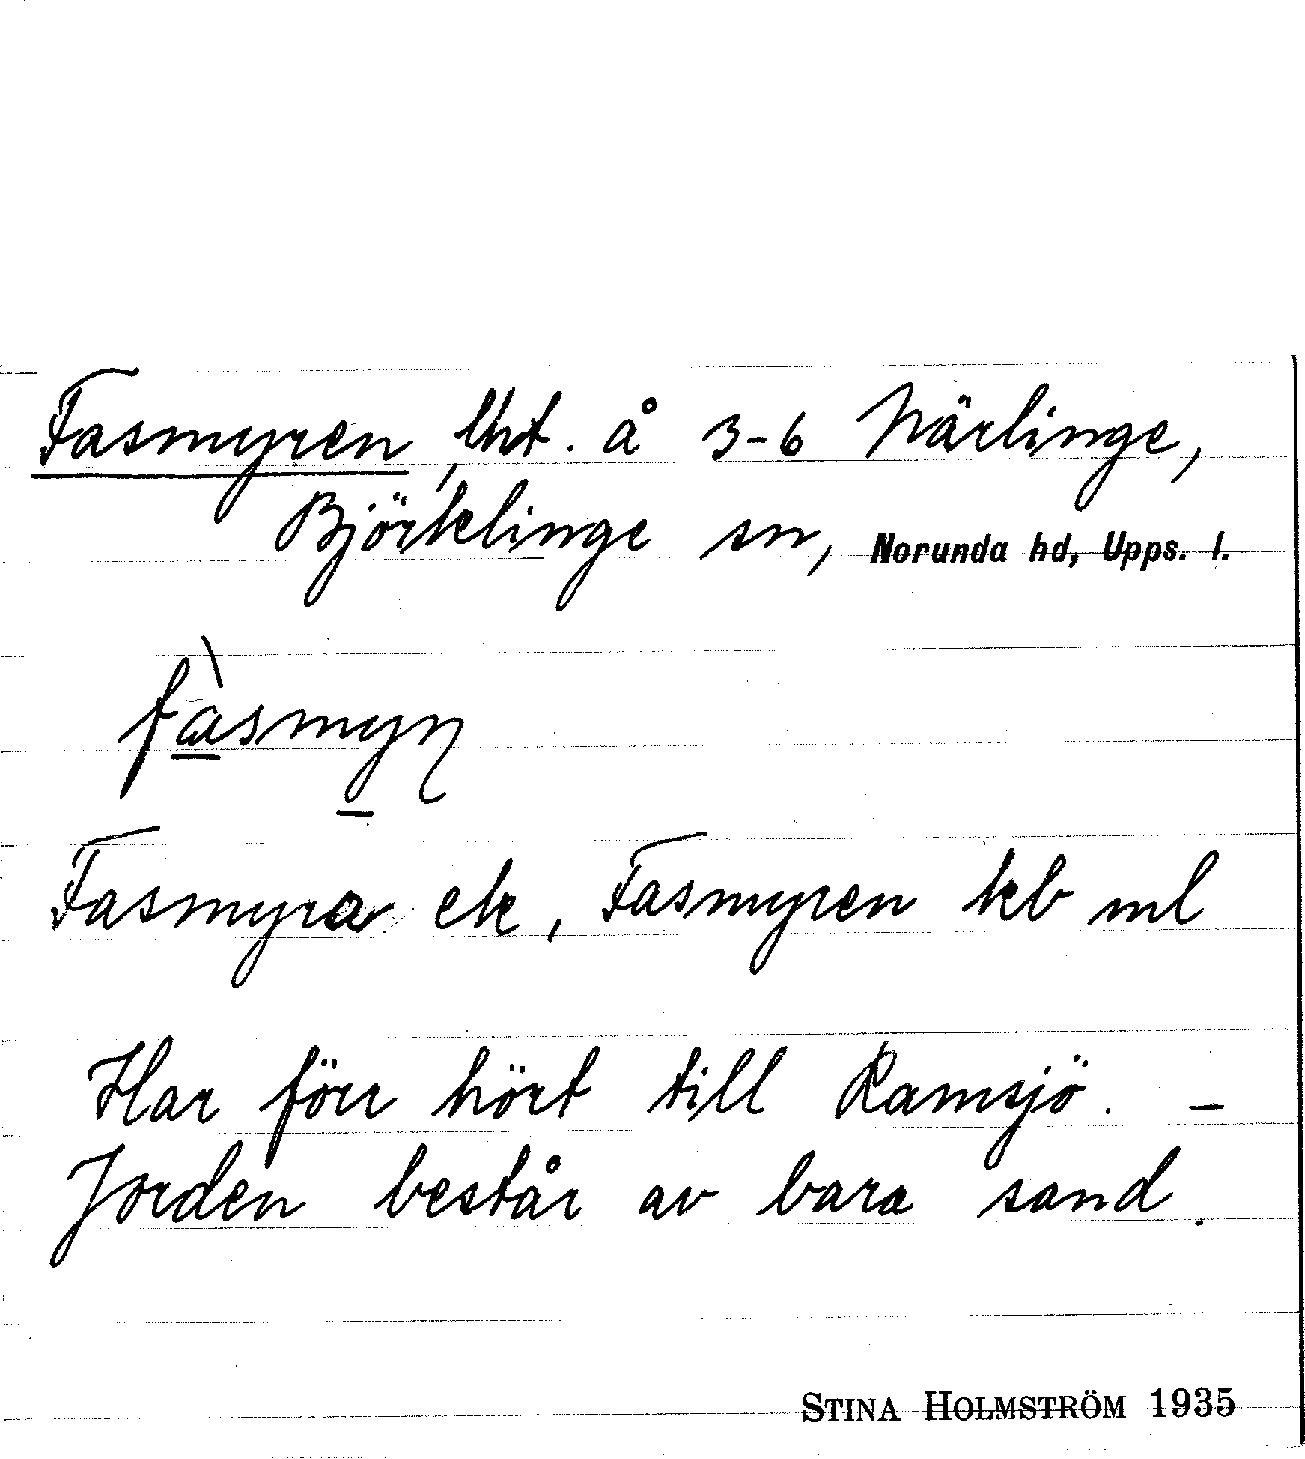 Fasmyren, lht. å 3-6 Närlinge,
Björklinge sn, Norunda hd, Upps. l.
fàsmyɳ
Fasmyra ek, Fasmyren kb ml
Har förr hört till Ramsjö. –
Jorden består av bara sand.
STINA HOLMSTRÖM 1935